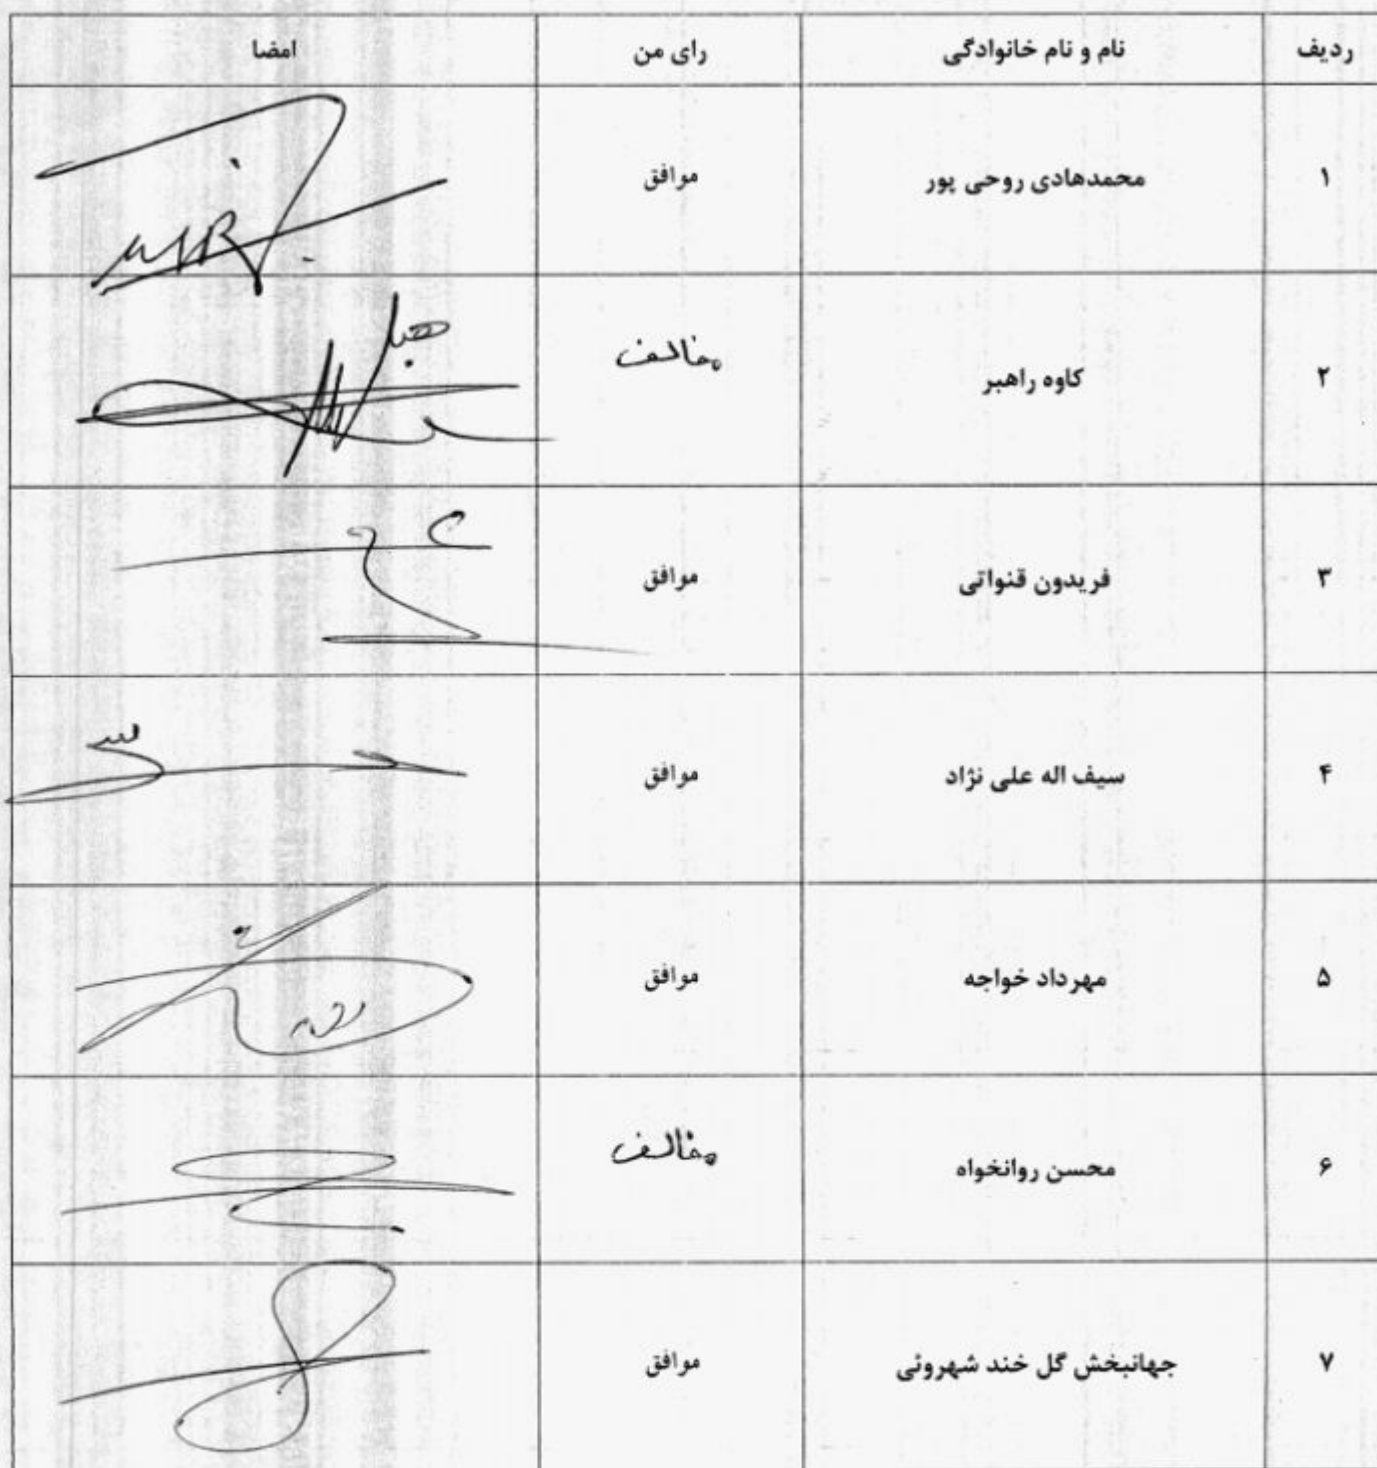 ردیف نام و نام خانوادگی رای من امضا
۱ محمدهادی روحی پور موافق
۲ کاوه راهبر مخالف
۳ فریدون قنواتی موافق
۴ سیف اله علی نژاد موافق
۵ مهرداد خواجه موافق
۶ محسن روانخواه مخالف
۷ جهانبخش گل خند شهروئی موافق